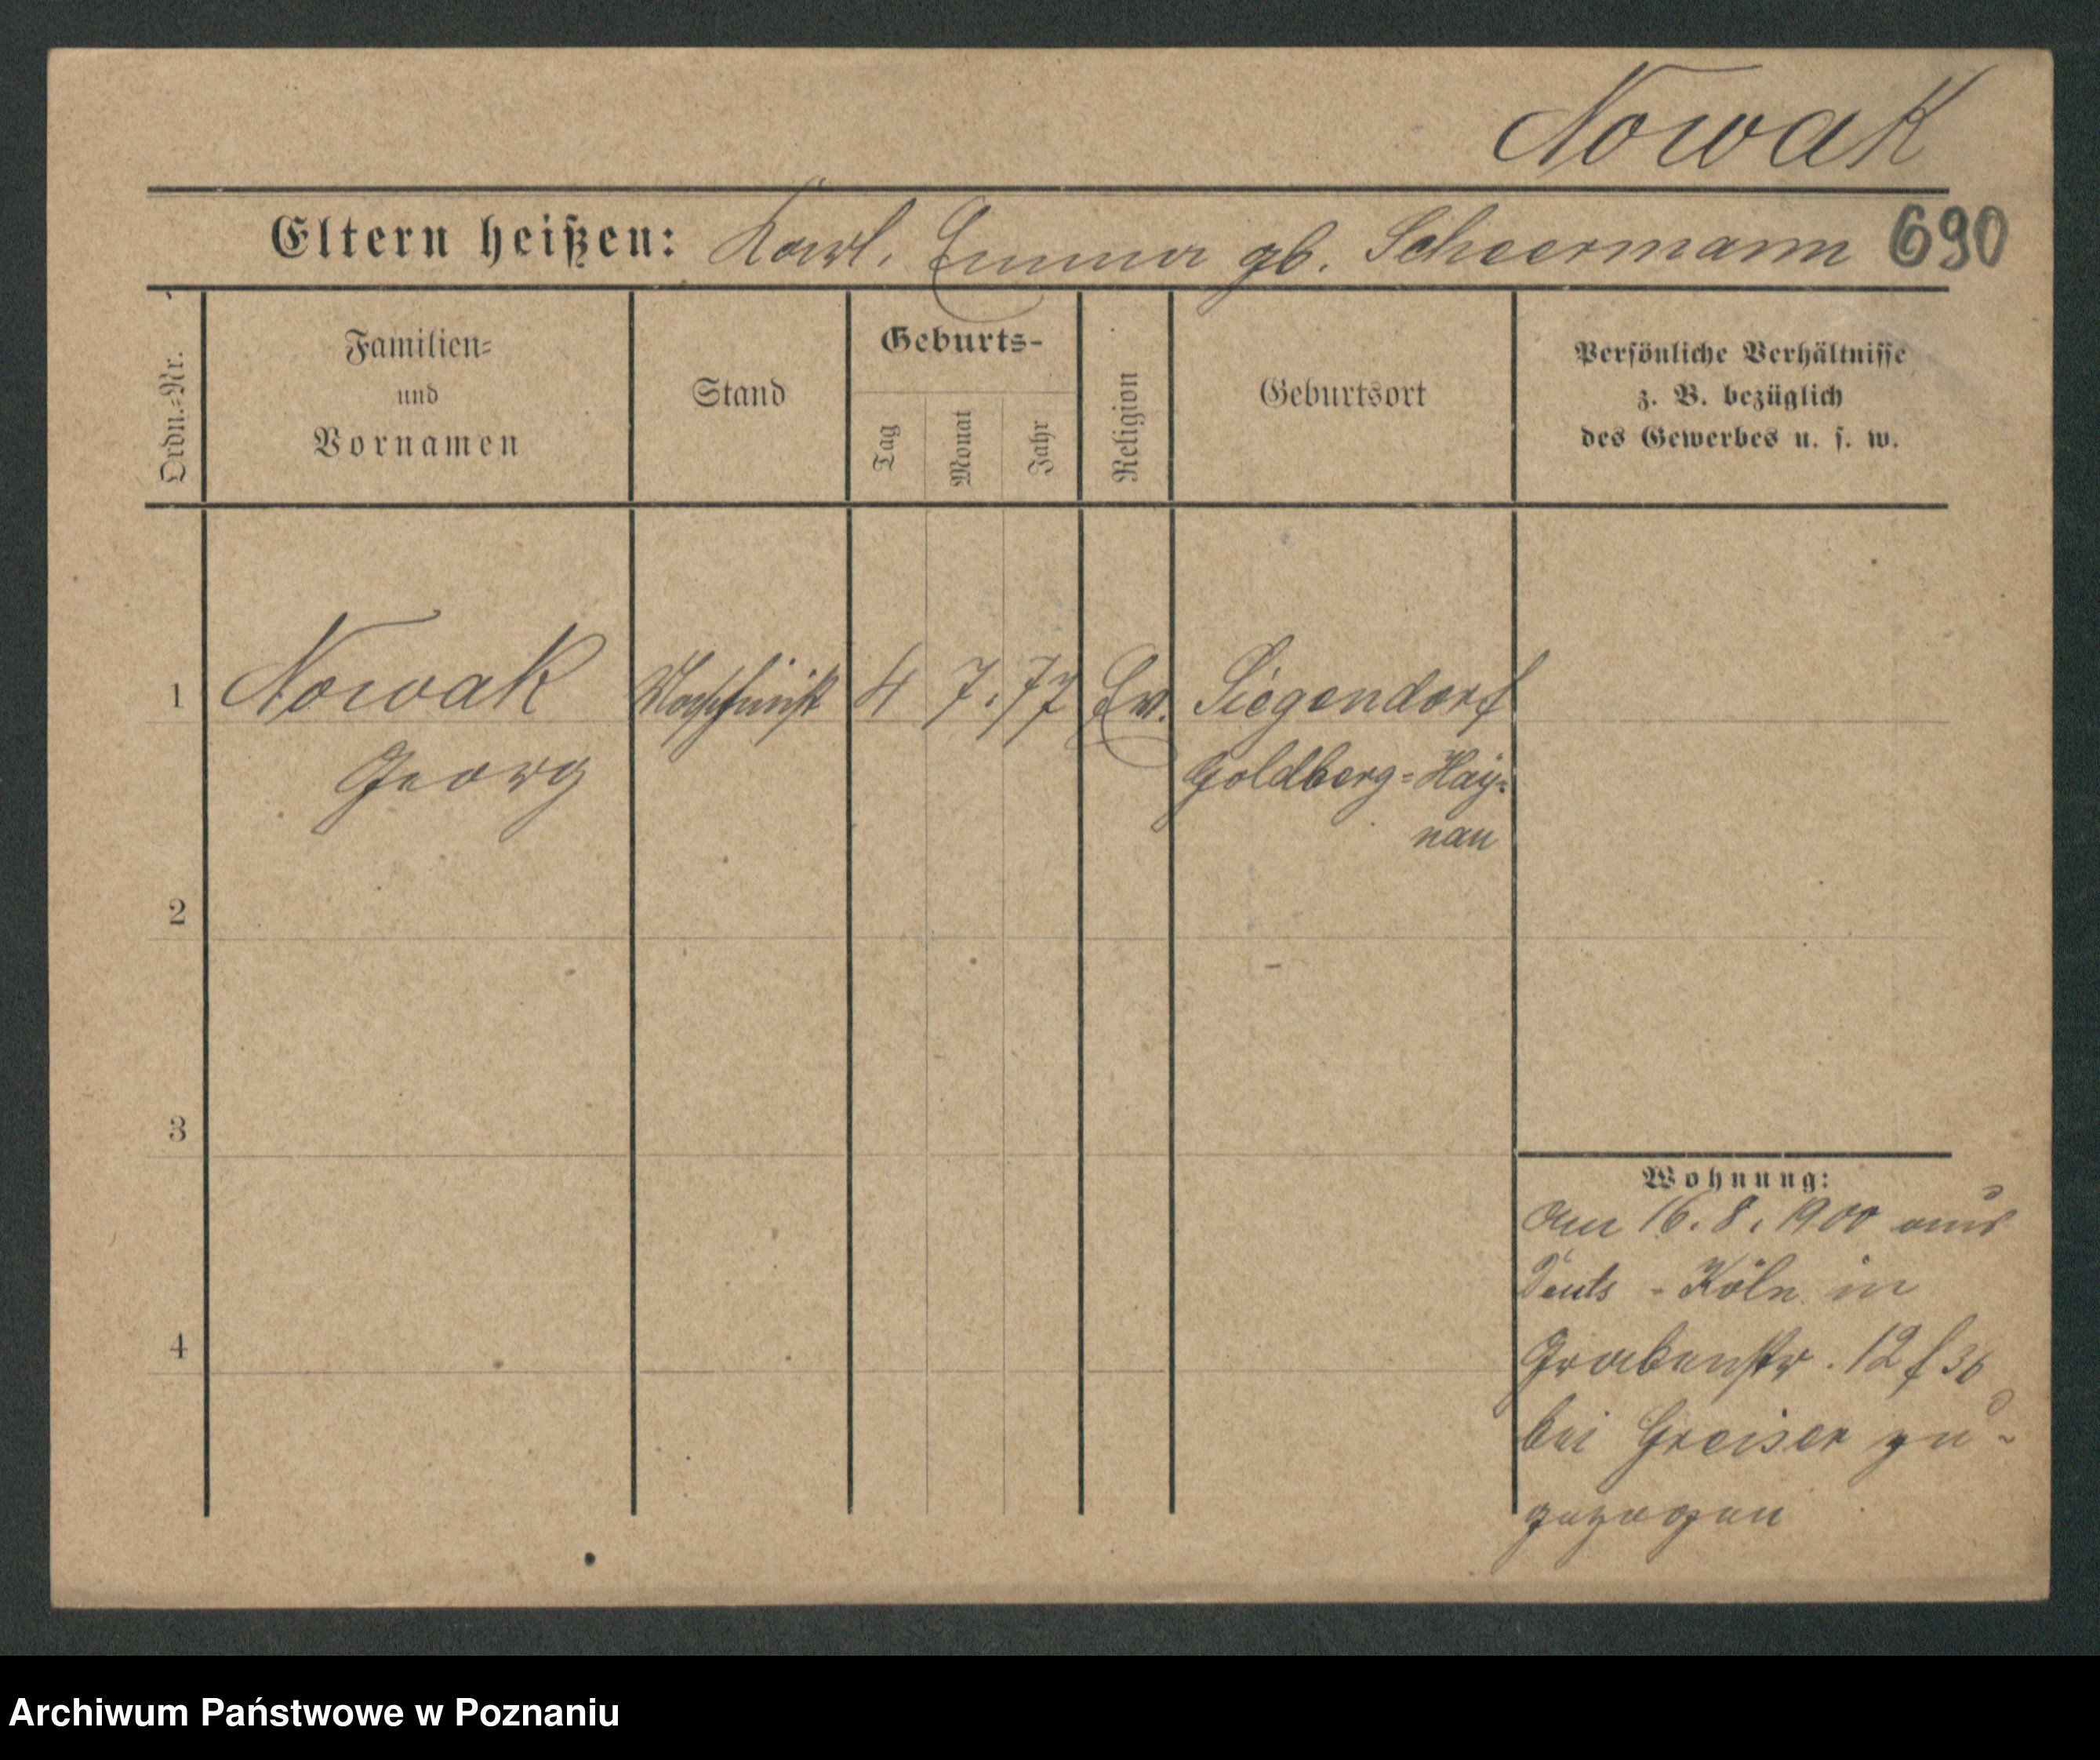 Nowak
Eltern heißen: Karl, Emma gb. Scheermann 690
Ordn.=Nr.
Familien=
und
Vornamen
Stand
Geburts-
Tag
Monat
Jahr
Religion
Geburtsort
Persönliche Verhältnisse
z. B. bezüglich
des Gewerbes u. s. w.
1 Nowak 4 7. 77 Ev. Siegendorf
Georg Goldberg=Hay=
nau
2
3
4
Wohnung:
Am 16. 8. 1900 aus
Deuts - Köln in
Grabenstr. 12
bei Greiser zu-
gezogen
Archiwum Państwowe w Poznaniu